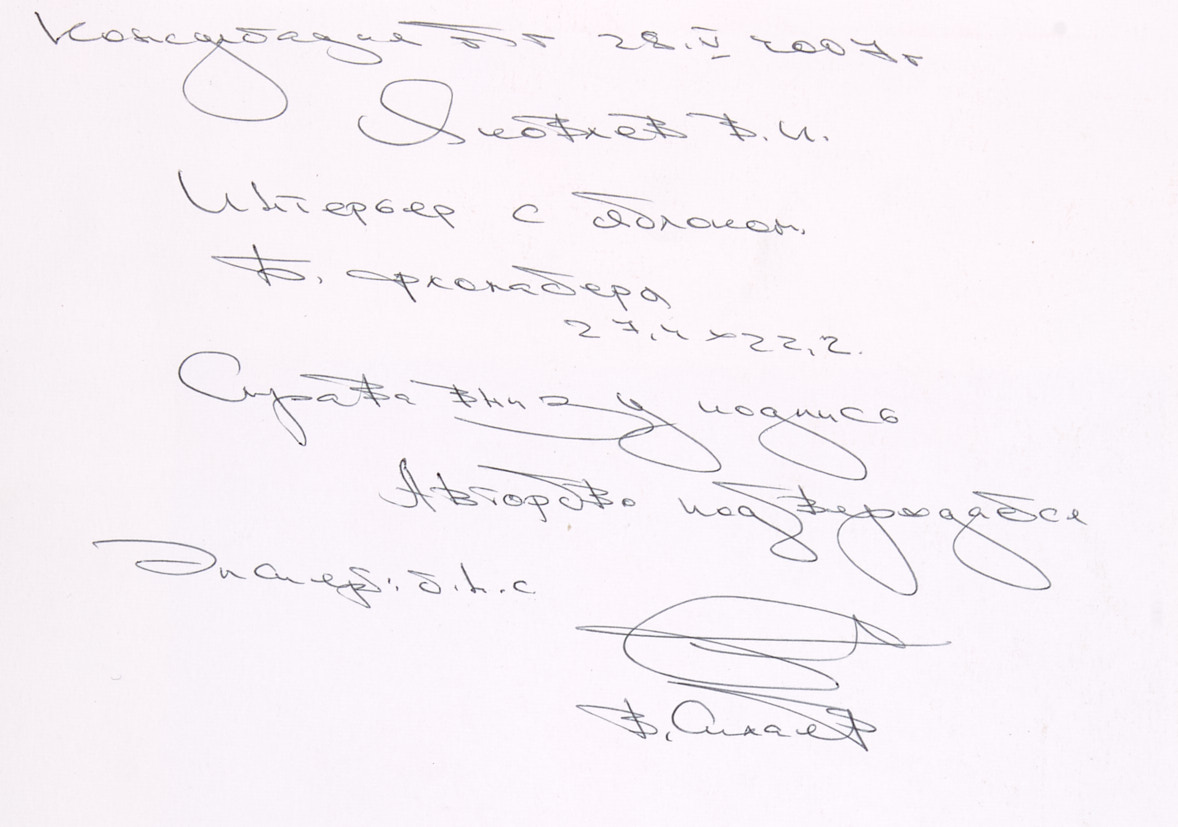 Консультация от 28.IV 2007г
Яковлев В.И.
Интерьер с яблоком.
Б. акв
27,4 × 22,2.
Справа внизу подпись
Авторство подтверждается
Эксперт: с.н.с
В. Силаев